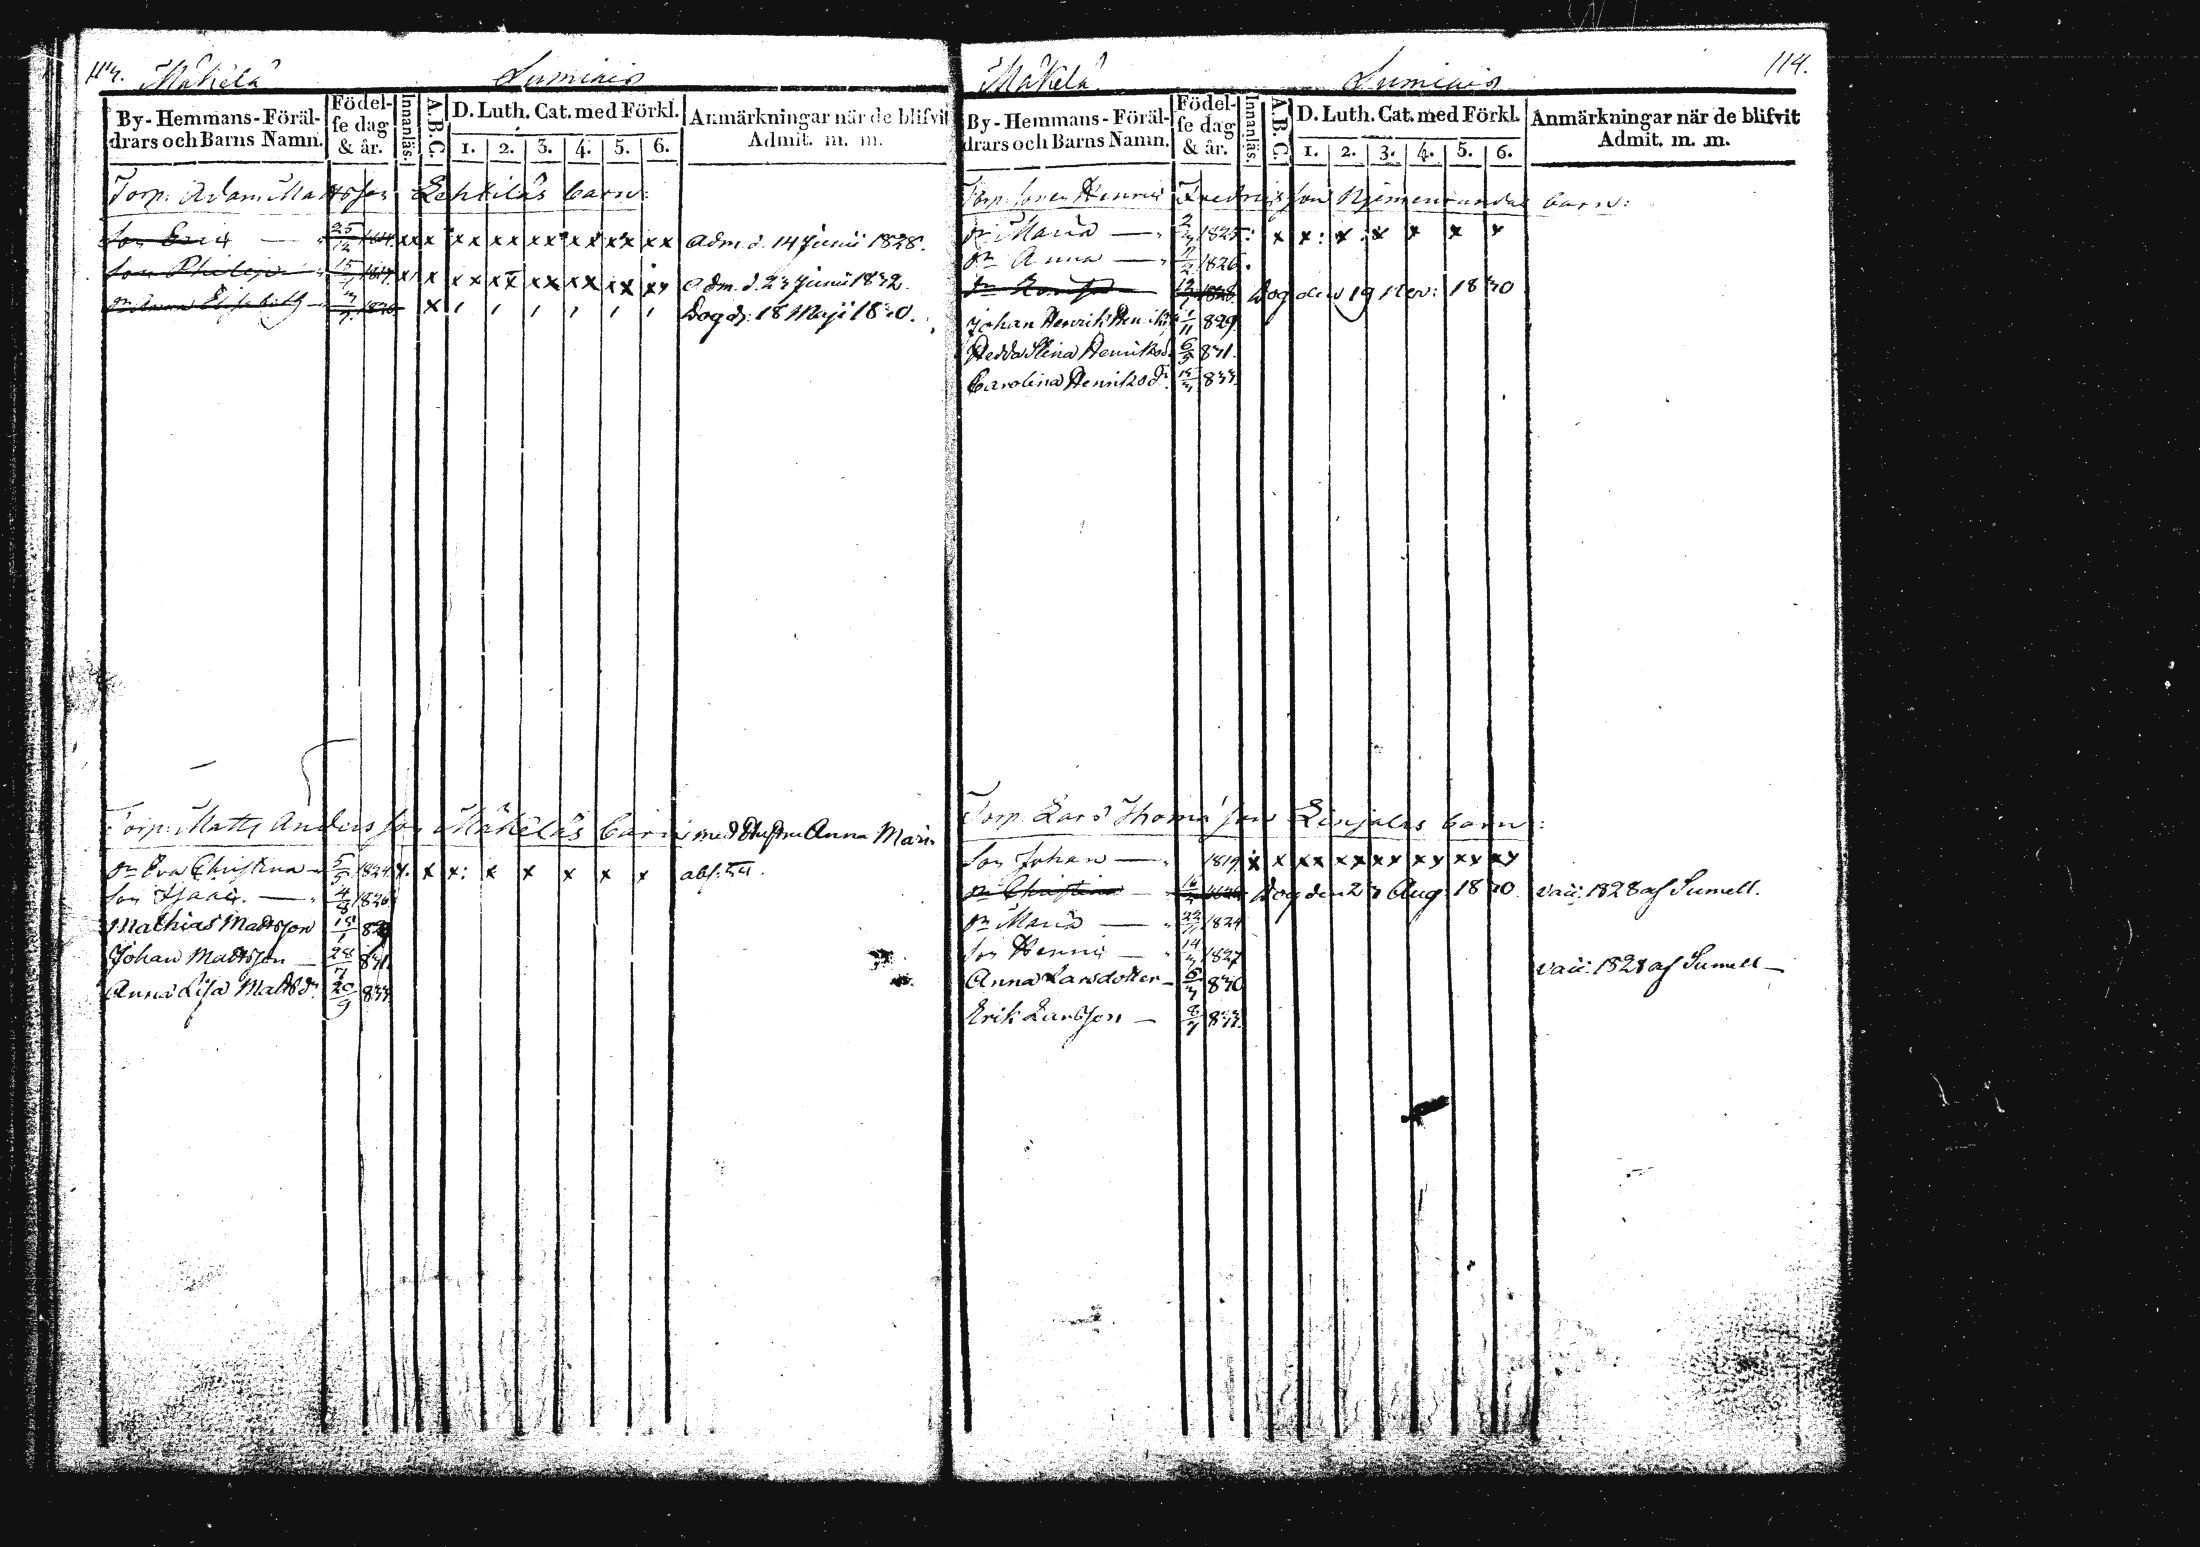 114. Mäkelä Lumiais
By-Hemmans-Föräl-
drars och Barns Namn.
Födel-
se dag
& år.
Innanläs.
A.B.C.
D. Luth. Cat. med Förkl.
1. 2. 3. 4. 5. 6.
Anmärkningar när de blifvit
Admit. m. m.
Torp. Adam Mattsson Lehtiläs barn:
Son Eric — 25/12 1814 xx x xx xx xx xx xx xx Adm. d. 14 Junii 1828.
Son Philip 1817 x x xx xx xx xx xx xx Adm. d. 23 Junii 1832.
Dr Anna Elisabeth x Dog d. 18 Maji 1830.
Torp. Matts Andersson Mäkeläs barn med Hustru Anna Maria
Dr Eva Christina 5/5 1824 x. x x: x x x x x
Son Isaac. — 4/8 1826
Mathias Mattsson 18/1 829
Johan Mattsson — 28/7 831
Anna Lisa Mattsdr 20/9 833
Mäkelä Lumiais 114.
By-Hemmans-Föräl-
drars och Barns Namn.
Födel-
se dag
& år.
Innanläs.
A.B.C.
D. Luth. Cat. med Förkl.
1. 2. 3. 4. 5. 6.
Anmärkningar när de blifvit
Admit. m. m.
Torp. Henric Fredricsson barn:
Dr Maria — 1825 x x: x x x x x
Dr Anna — 1826.
Dr 1828 Dog den 19 Nov: 1830
Johan Henrik 1/11 829
Hedda Stina Henriksd. 6/5 831.
Carolina Henriksdr 833.
Torp. Lars Thomasson Linjalas barn:
Son Johan — 1819 x x xx xx xx xx xx xx
Dr Christina Dog den 23 Aug 1830. vacc: 1828 af Sumell.
Dr Maria — 1824
Son Henric — 14/3 1827 vacc: 1828 af Sumell —
Anna Larsdotter — 5/3 830
Erik Larsson — 8/7 833.